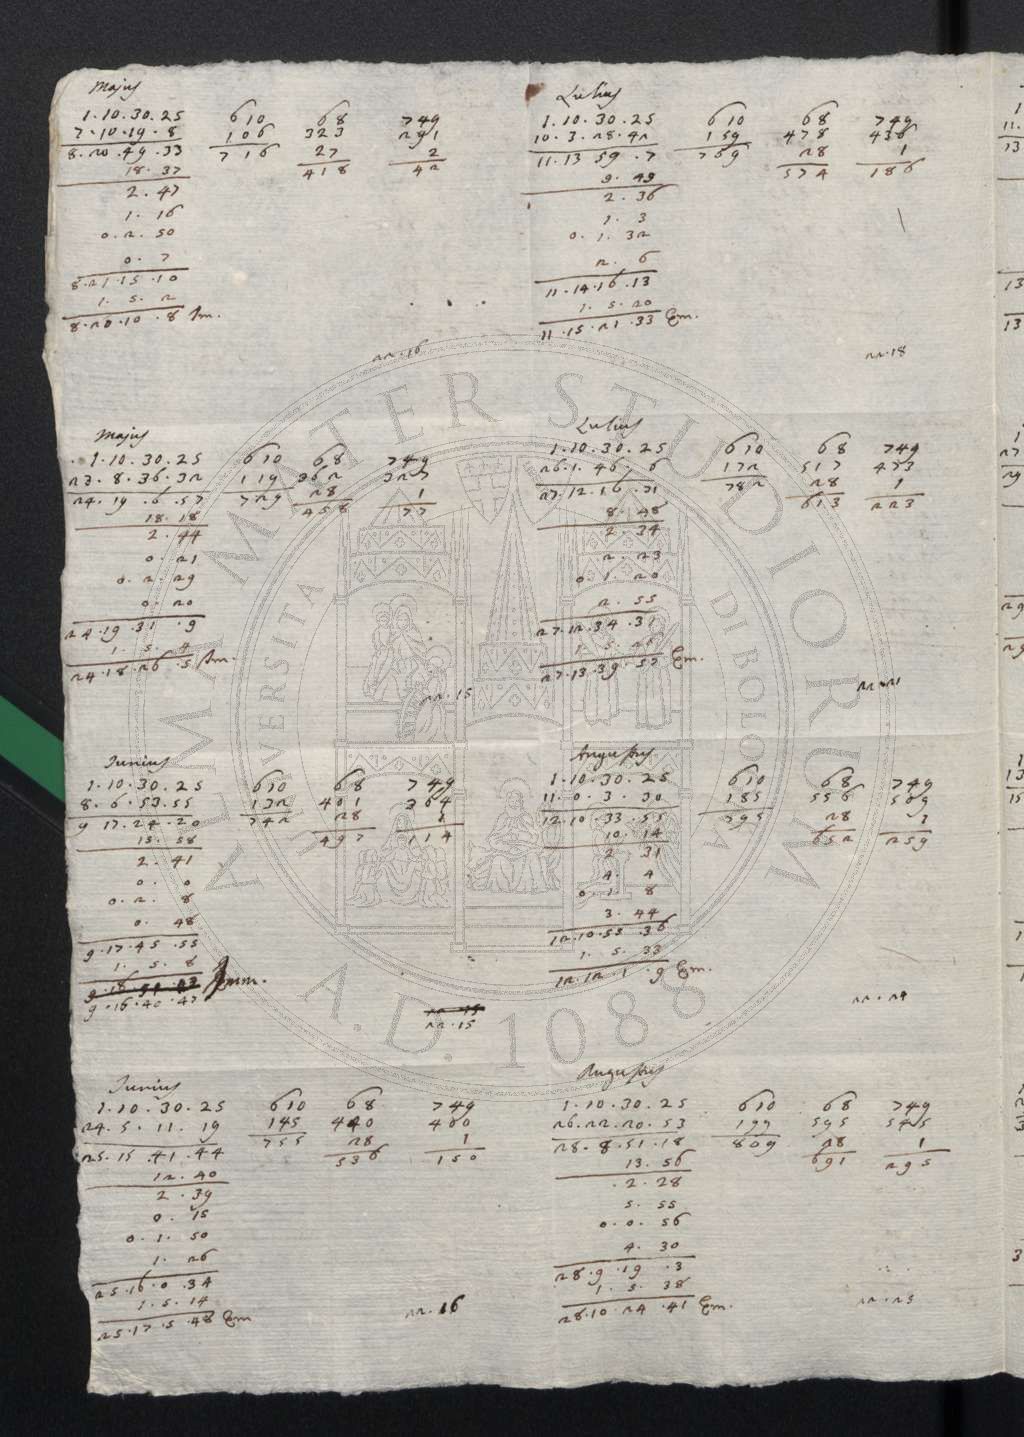 Majus
1.10.30.25 610 68 749
7.10.19.8 106 323 291
8.20.49.33 716 27 2
18.37 418 42
2.47
1.16
0.2.50
0.7
8.21.15.10
1.5.2
8.20.10.8 Im.
22.16
Majus
1.10.30.25 610 68 749
23.8.36.32 119 362 327
24.19.6.57 729 28 1
18.18 458 77
2.44
0.21
0.2.29
0.20
24.19.31.9
1.5.4
24.18.26.5 Im.
22.15
Junius
1.10.30.25 610 68 749
8.6.53.55 132 401 364
9.17.24.20 742 28 1
15.58 497 114
2.41
0.0
0.2.8
0.48
9.17.45.55
1.5.8
9.16.40.47
22.15
Junius
1.10.30.25 610 68 749
24.5.11.19 145 440 400
25.15.41.44 755 28 1
12.40 536 150
2.39
0.15
0.1.50
1.26
25.16.0.34
1.5.14
25.17.5.48 Em
22.16
Lulius
1.10.30.25 610 68 749
10.3.28.42 159 478 436
11.13.59.7 769 28 1
9.49 574 186
2.36
1.3
0.1.32
2.6
11.14.16.13
1.5.20
11.15.21.33 Em.
22.18
Lulius
1.10.30.25 610 68 749
26.1.46.6 172 517 473
27.12.16.31 782 28 1
8.48 613 223
2.34
2.23
0.1.20
2.55
27.12.34.31
1.5.26
27.13.39.57 Em.
22.21
Augustus
1.10.30.25 610 68 749
11.0.3.30 185 556 509
12.10.33.55 795 28 1
10.14 652 259
2.31
4.4
0.1.8
3.44
12.10.55.36
1.5.33
12.12.1.9 Em.
22.24
Augustus
1.10.30.25 610 68 749
26.22.20.53 199 595 545
28.8.51.18 809 28 1
13.56 691 295
2.28
5.55
0.0.56
4.30
28.9.19.3
1.5.38
28.10.24.41 Em.
22.25
ALMA MATER STUDIORUM
A.D. 1088
UNIVERSITA DI BOLOGNA